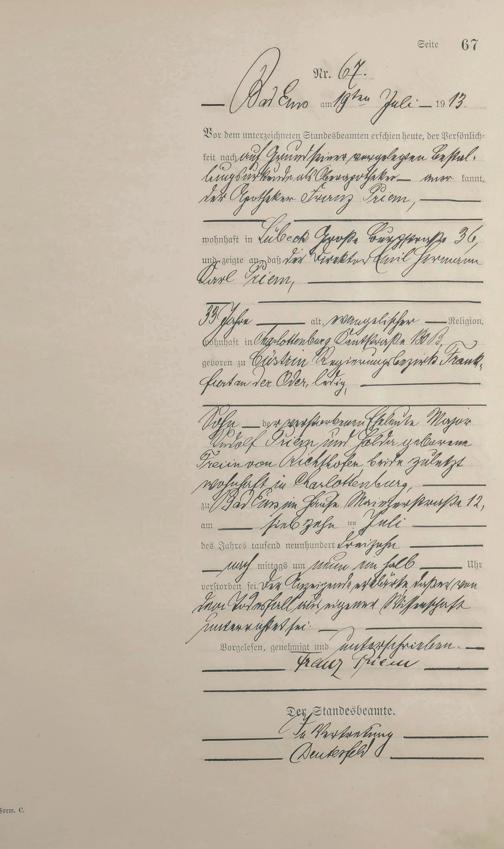 Seite 67
Nr. 67.
Bad Ems am 19ten Juli 1913.
Vor dem unterzeichneten Standesbeamten erschien heute, der Persönlich-
keit nach auf Grund seiner vorgelegten Bestal-
lungsurkunde als Oberapotheker aner kannt,
der Apotheker Franz Priem,
wohnhaft in Lübeck Große Burgstraße 36,
und zeigte an, daß der Direktor Emil Hermann
Karl Priem,
33 Jahre alt, evangelischer Religion,
wohnhaft in Charlottenburg Kantstraße
geboren zu Cüstrin Regierungsbezirk Frank-
furt an der Oder, ledig,
Sohn der verstorbenen Eheleute Major
Rudolf Priem und geborene
Freiin von Richthofen beide zuletzt
wohnhaft in Charlottenburg,
zu Bad Ems im Hause Mainzerstraße 12,
am siebzehn ten Juli
des Jahres tausend neunhundert dreizehn
nach mittags um neun ein halb Uhr
verstorben sei. Der Anzeigende erklärte daß er von
dem Todesfall aus eigener Wissenschaft
unterrichtet sei.
Vorgelesen, genehmigt und unterschrieben.
Franz Priem
Der Standesbeamte.
In Vertretung
Form. C.